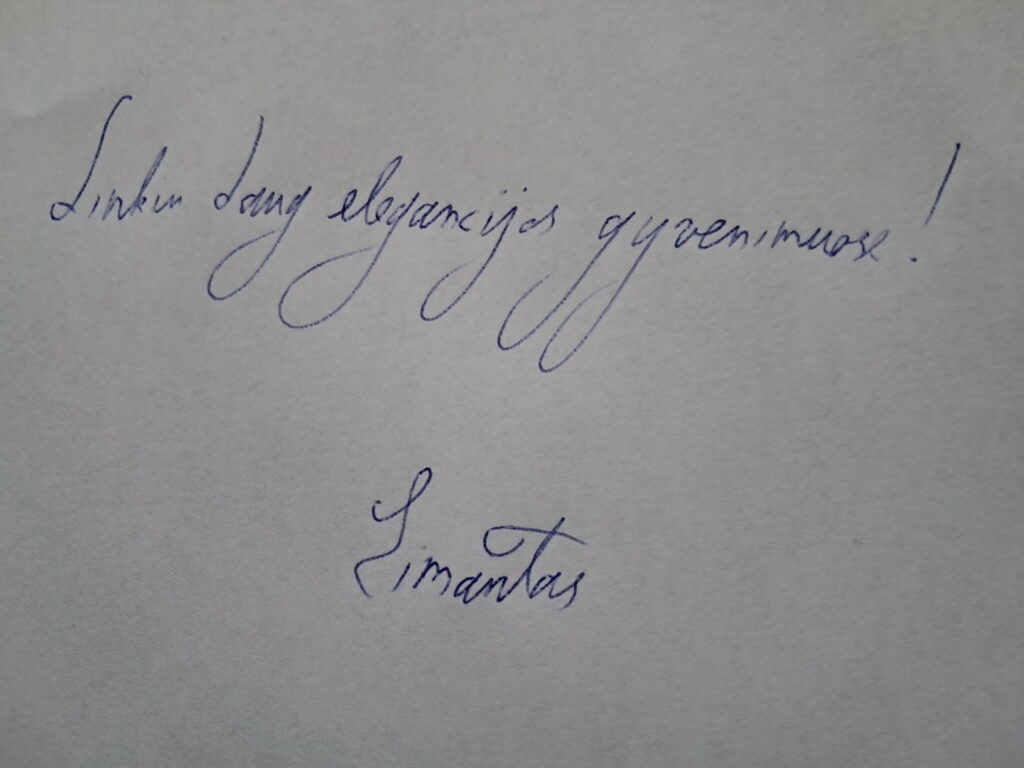 Linkiu daug elegancijos gyvenimuose!
Simantas